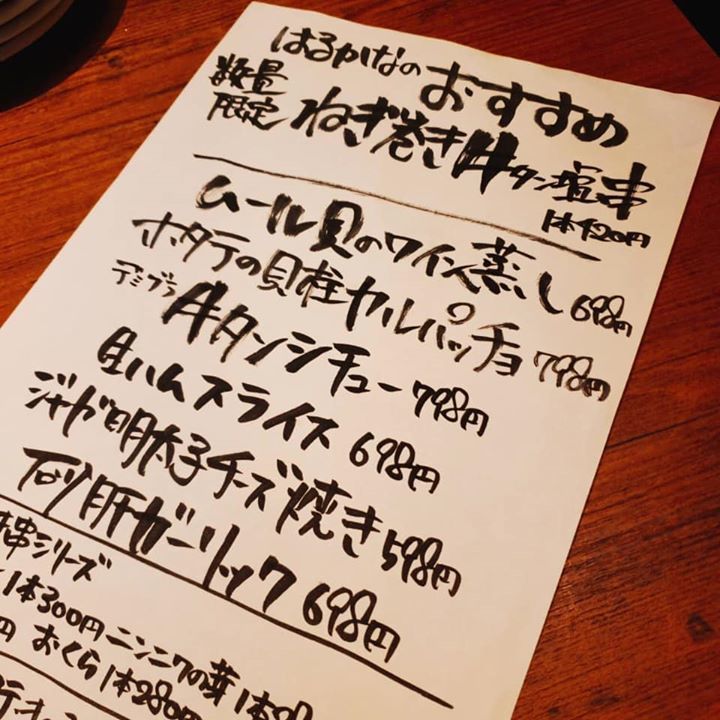 はるかなのおすすめ
数量限定 ねぎ巻き牛タン塩串
1本420円
ムール貝のワイン蒸し 698円
ホタテの貝柱カルパッチョ 798円
デミグラ 牛タンシチュー 798円
生ハムスライス 698円
ジャガ明太子チーズ焼き 598円
砂肝ガーリック 698円
串シリーズ
1本300円 ニンニクの芽 1本
円 おくら1本280円